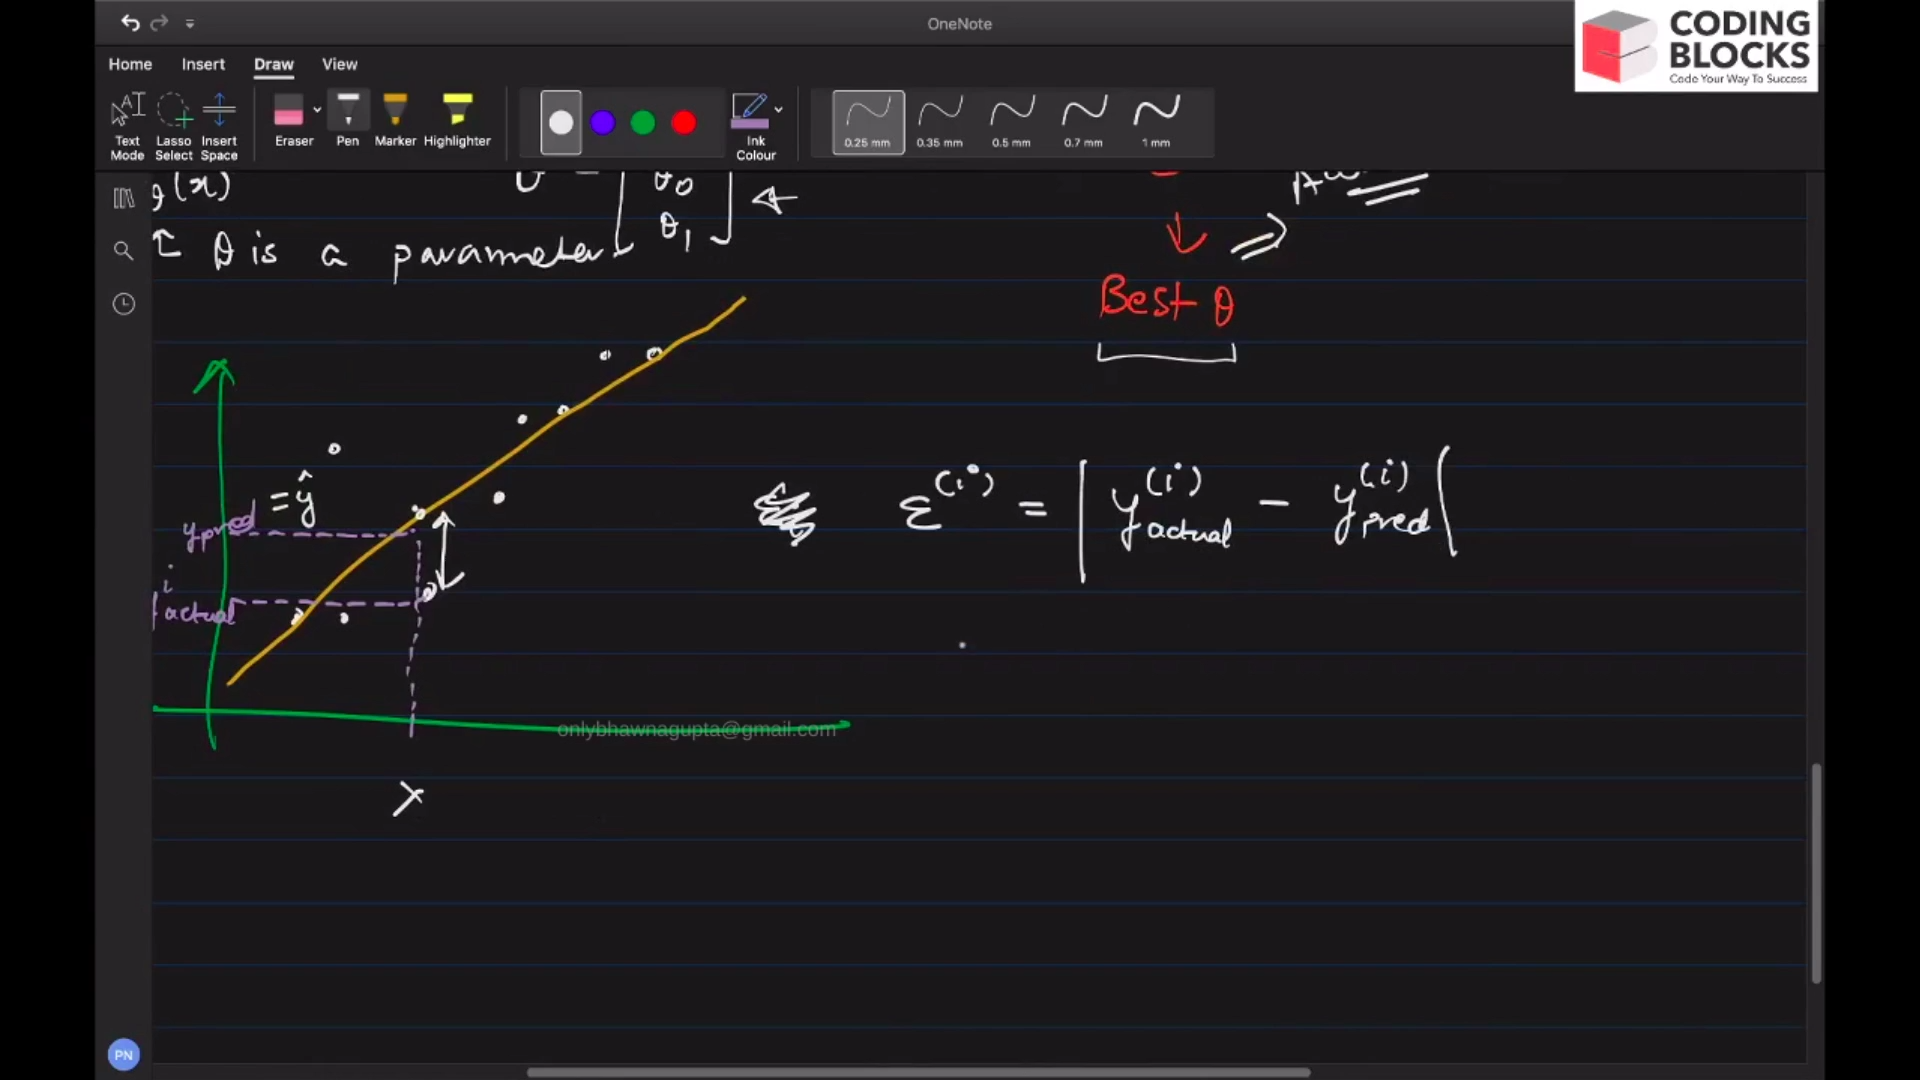 OneNote
CODING
BLOCKS
Code Your Way To Success
Home Insert Draw View
Text Mode Lasso Select Insert Space Eraser Pen Marker Highlighter Ink Colour 0.25 mm 0.35 mm 0.5 mm 0.7 mm 1 mm
(x)
θ₀
θ₁
θ is a parameter
Best θ
= ŷ
y pred
i
actual
ε⁽ⁱ⁾ = | y⁽ⁱ⁾ actual − y⁽ⁱ⁾ pred |
onlybhawnagupta@gmail.com
X
PN